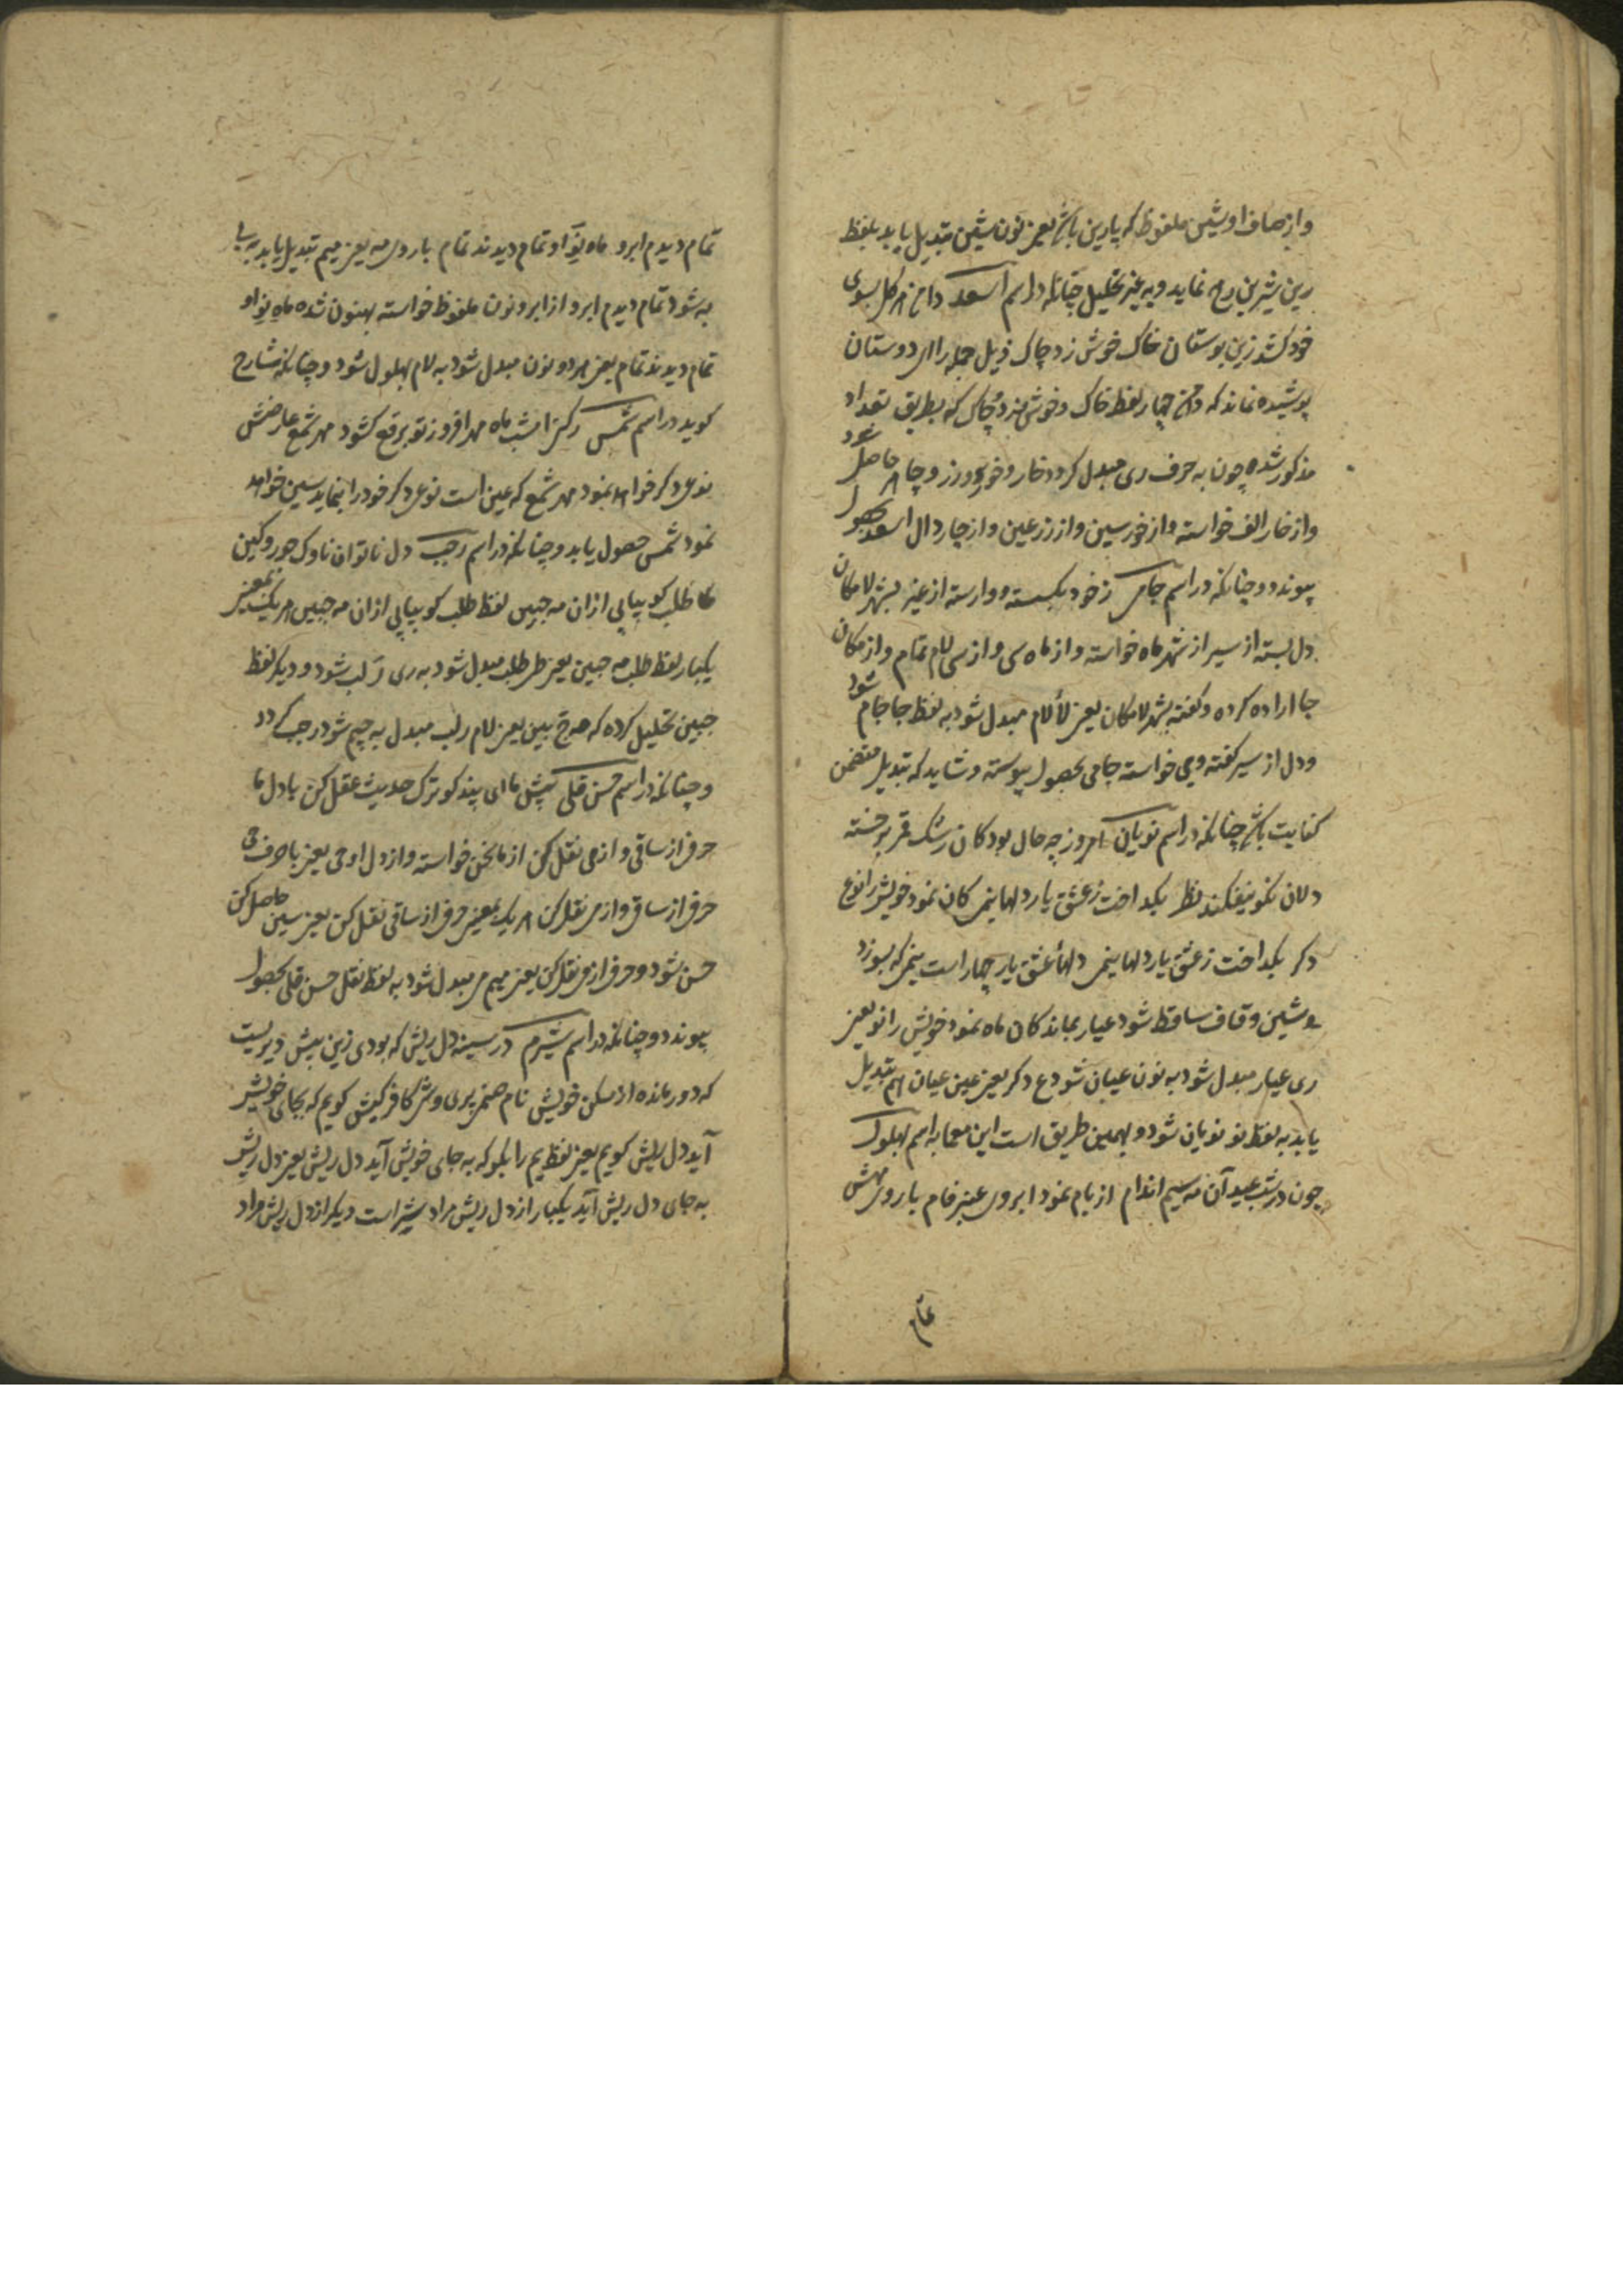 واز صاف او شین ملفوظ که پارین باشد یعنی نون بشین تبدیل یابد بلفظ
رین شیرین رخ نماید وبه غیر تحلیل چنانکه در اسم اسعد دامن هر گل بسوی
خود کشد زین بوستان خاک خوش زد چاک ذیل جمله را ای دوستان
پوشیده نماند که چهار لفظ خاک وخوش وزد وچاک که بطریق تعداد
مذکور شده چون به حرف ری مبدل گردد خار وخور وزر وچار حاصل شود
واز خار الف خواسته واز خور سین واز زر عین واز چار دال اسعد بحصول
پیوندد وچنانکه در اسم جامی ز خود بگسسته ووارسته از غیر بشهر لامکان
دل بسته از سیر از شهر ماه خواسته واز ماه سی واز سی لام تمام واز مکان
جا اراده کرده وگفته بشهر لامکان یعنی لا لام مبدل شود به لفظ جا جام شود
ودل از سیر گفته ومی خواسته جامی بحصول پیوسته وشاید که تبدیل متضمن
کنایت باشد چنانکه در اسم نویان امروز چه حال بود کان رشک قمر بر خسته
دلان نکو نیفکند نظر بگداخت ز عشق یار دلها نیمی کان نمود خویش را نوع
دگر بگداخت ز عشق یار دلها نیمی دلها عشق یار چهار است نیمی که بسوزد
وشین وقاف ساقط شود عیار بماند کان ماه نمود خویش را نو یعنی
ری عیار مبدل شود به نون عیان شود ع دگر یعنی عین عیان هم تبدیل
یابد به لفظ نو نویان شود وبهمین طریق است این معما به اسم بهلول
چون در شب عید آن مه سیم اندام از بام نمود ابروی عنبر فام با روی مهش
تمام
تمام دیدم ابرو ماه نو او تمام دیدند تمام با روی مه یعنی میم تبدیل یابد به بی
به شود تمام دیدم ابرو از ابرو نون ملفوظ خواسته بهنون شده ماه نو او
تمام دیدند تمام یعنی هر دو نون مبدل شود به لام بهلول شود وچنانکه شارح
گوید در اسم شمس گر امشب ماه مهر افروز تو برقع گشود مهر شمع عارضش
نوع دگر خواهد نمود مهر شمع که عین است نوع دگر خود را بنماید سین خواهد
نمود شمس حصول یابد وچنانکه در اسم رجب دل ناتوان ناوک جور وکین
طلب گو بیابی ازان مه جبین لفظ طلب گو بیابی ازان مه جبین
یکبار لفظ طلب مه جبین یعنی طی طلب مبدل شود به ری رلب شود ودیگر لفظ
جبین تحلیل کرده که ج بین یعنی لام رلب مبدل به جیم شود رجب گردد
وچنانکه در اسم حسن قلی پیش ما ای پندگو ترک حدیث عقل کن با دل ما
حرفی از ساقی واز می نقل کن از ما نحن خواسته واز دل او حی یعنی با حرف
حرفی از ساقی واز می نقل کن هر یک یعنی حرفی از ساقی نقل کن یعنی سین حاصل کن
حسن شود وحرفی از می نقل کن یعنی میم می مبدل شود به لفظ نقل حسن قلی بحصول
پیوندد وچنانکه در اسم شیرم در سینه دل ریش که بودی زین پیش دیریست
که دور مانده از مسکن خویش نام صنم پری وش کافر کیش گویم که بجای خویش
آید دل ریش گویم یعنی لفظ یم را بگو که به جای خویش آید دل ریش یعنی دل ریش
به جای دل ریش آید یکبار از دل ریش مراد شیر است دیگر از دل ریش مراد